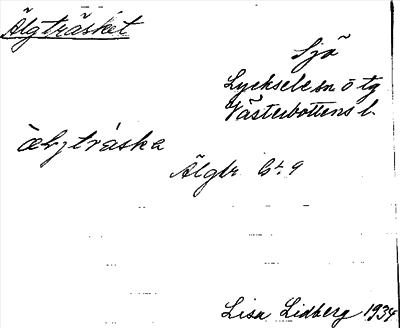 Älgträsket
Sjö
Lycksele sn o tg
Västerbottens l.
älgträska
Älgtr 6:9
Lisa Lidberg 1934